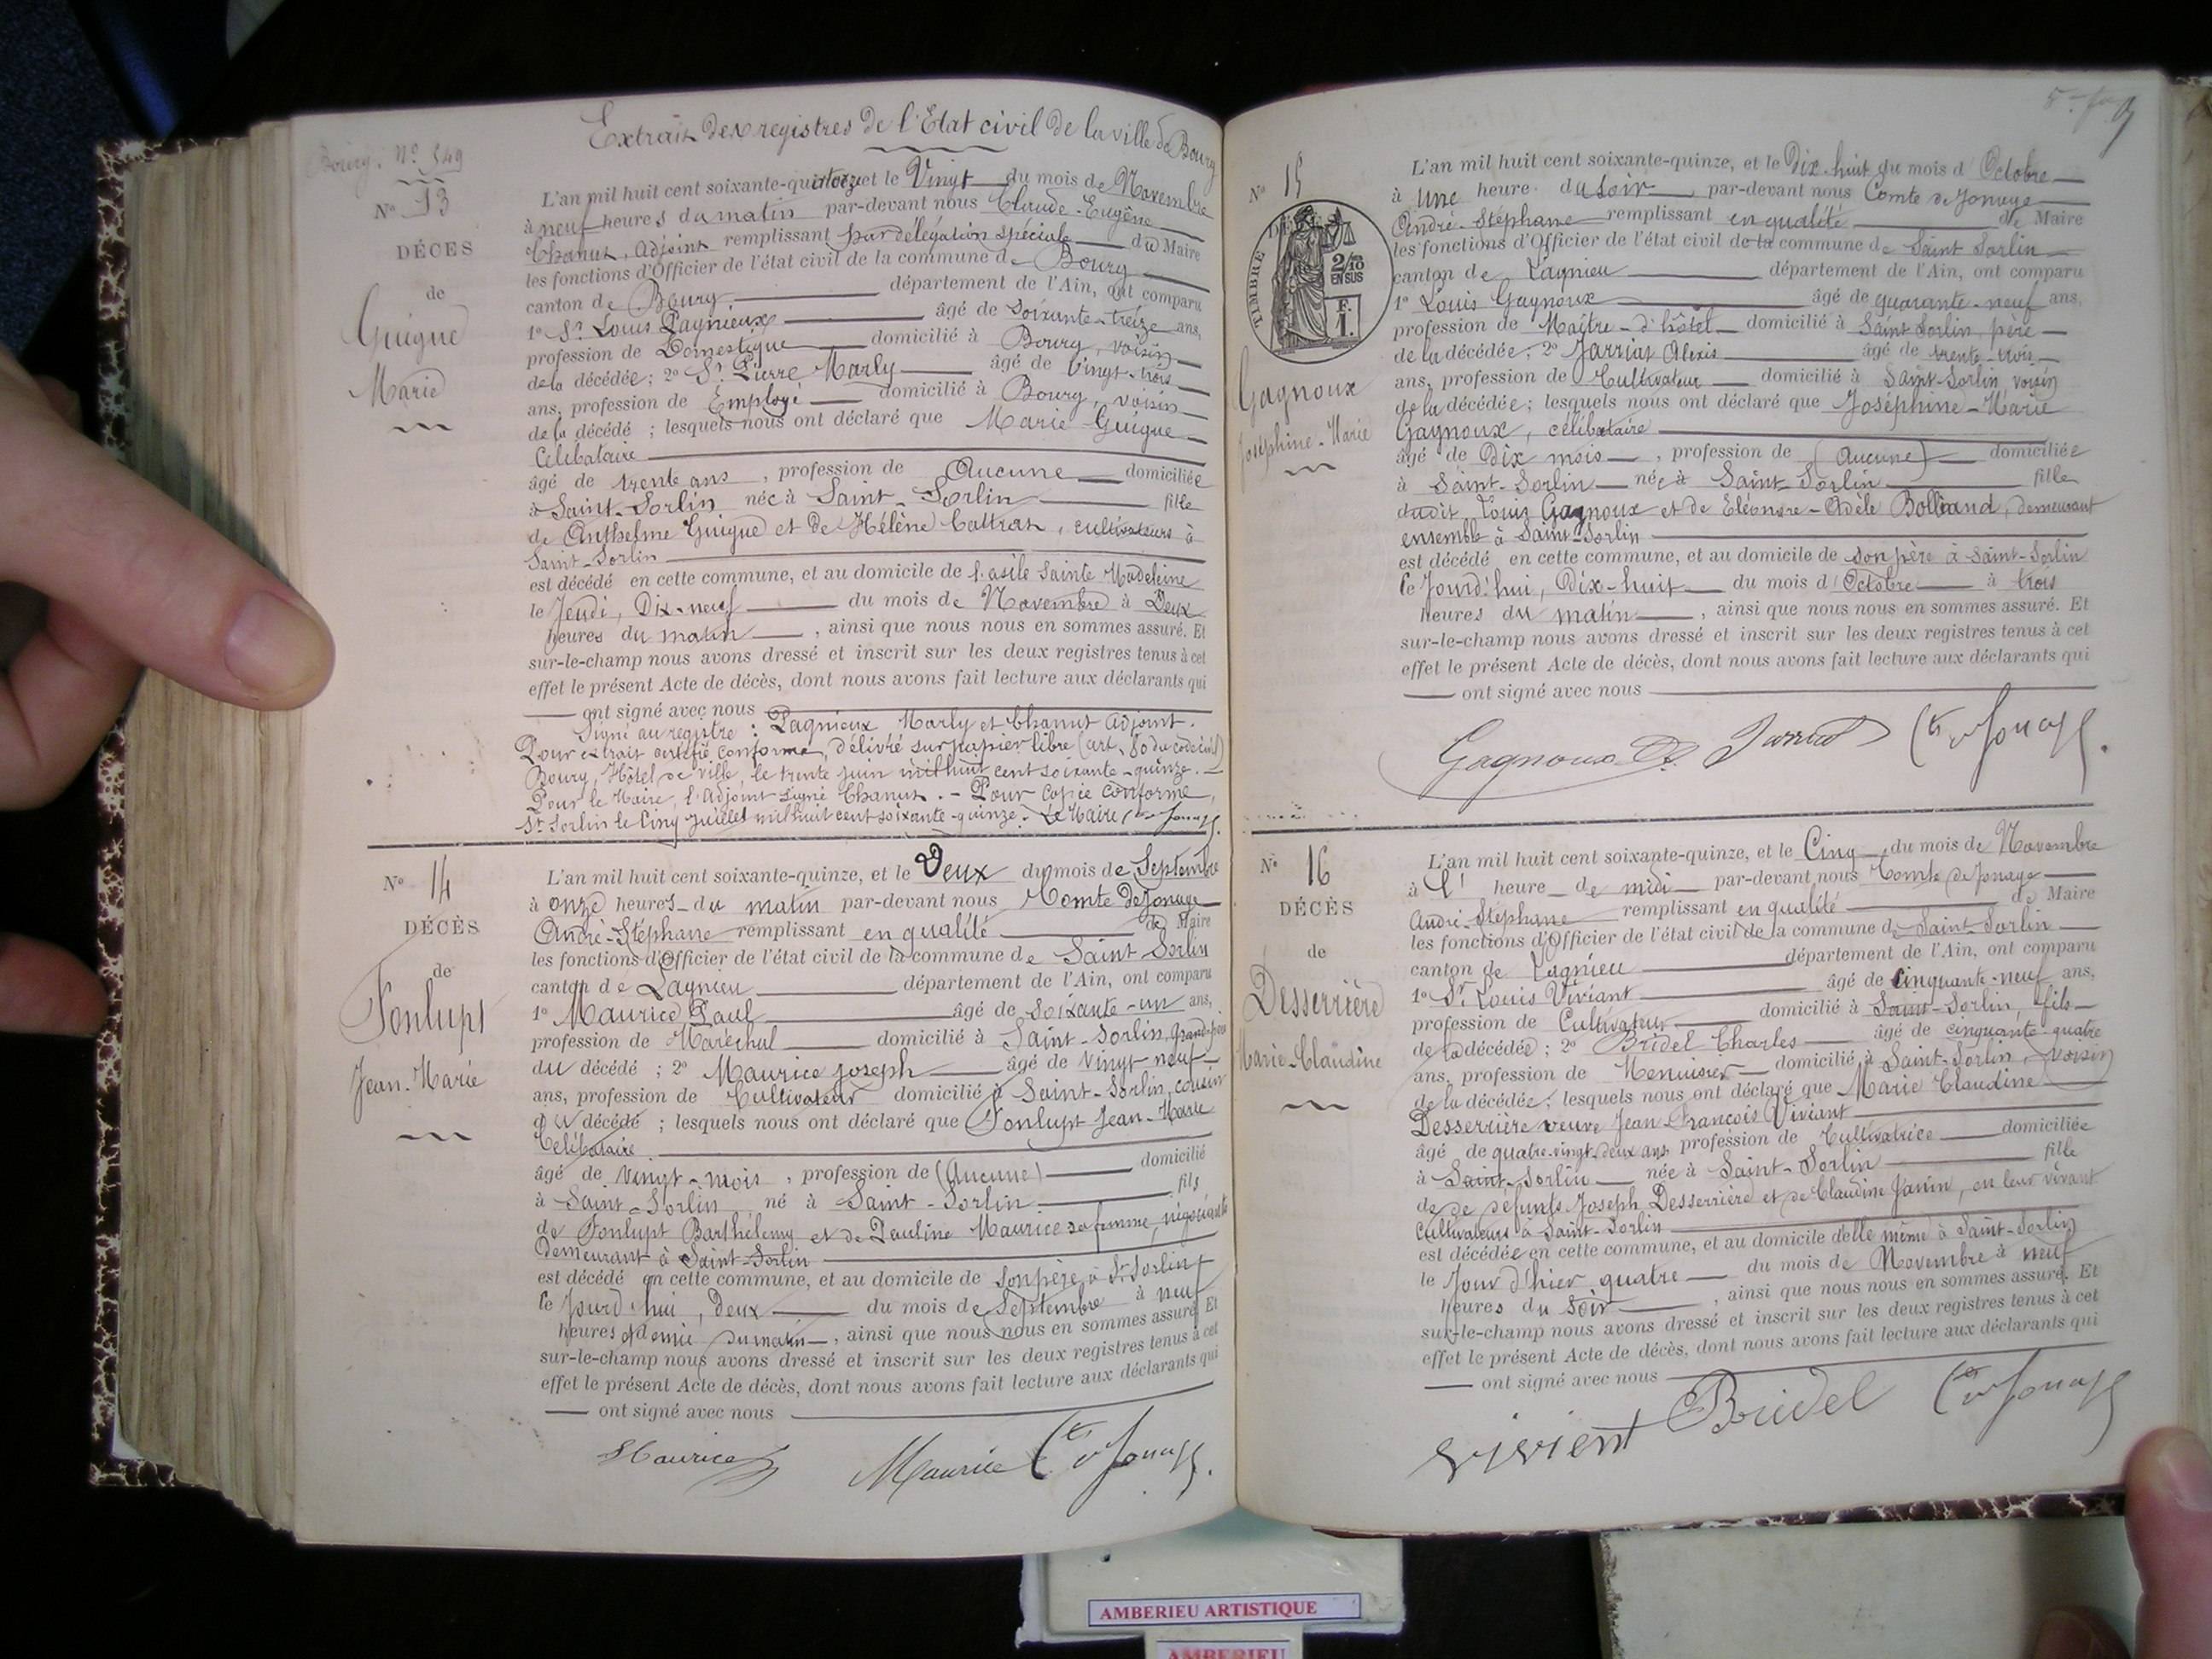 Extrait des registres de l'Etat civil de la ville de Bourg
Bourg. N° 549
N° 13
DÉCES
de
Guigue
Marie
L'an mil huit cent soixante-quatorze et le Vingt du mois de Novembre
à neuf heures du matin par-devant nous Claude-Eugène
Chanut, adjoint remplissant par délégation spéciale du Maire
les fonctions d'Officier de l'état civil de la commune de Bourg
canton de Bourg, département de l'Ain, ont comparu
1° Sr Louis Pagnieux âgé de soixante-treize ans,
profession de Domestique domicilié à Bourg, voisin
de la décédée; 2° Sr Pierre Marly âgé de Vingt-trois
ans, profession de Employé domicilié à Bourg, voisin
de la décédé ; lesquels nous ont déclaré que Marie Guigue
Célibataire
âgé de trente ans , profession de Aucune domiciliée
à Saint-Sorlin née à Saint-Sorlin fille
de Anthelme Guigue et de Hélène Cattran, cultivateurs à
Saint-Sorlin
est décédé en cette commune, et au domicile de l'asile Sainte Madeleine
le Jeudi, Dix-neuf du mois de Novembre à Deux
heures du matin , ainsi que nous nous en sommes assuré. Et
sur-le-champ nous avons dressé et inscrit sur les deux registres tenus à cet
effet le présent Acte de décès, dont nous avons fait lecture aux déclarants qui
ont signé avec nous
Signé au registre : Pagnieux Marly et Chanut adjoint.
Pour extrait certifié conforme, délivré sur papier libre (art. 80 du code civil)
Bourg, Hôtel de Ville, le trente juin mil huit cent soixante-quinze.
Pour le Maire, l'adjoint signé Chanut. - Pour copie conforme,
St Sorlin le Cinq juillet mil huit cent soixante-quinze. Le Maire Cte de Jonage
N° 14
DÉCÈS
de
Fonlupt
Jean-Marie
L'an mil huit cent soixante-quinze, et le Deux du mois de Septembre
à onze heures du matin par-devant nous Comte de Jonage
André-Stéphane remplissant en qualité de Maire
les fonctions d'Officier de l'état civil de la commune de Saint Sorlin
canton de Lagnieu département de l'Ain, ont comparu
1° Maurice Paul âgé de soixante-un ans,
profession de Maréchal domicilié à Saint-Sorlin, grand-père
du décédé ; 2° Maurice Joseph âgé de Vingt-neuf
ans, profession de Cultivateur domicilié à Saint-Sorlin, cousin
du décédé ; lesquels nous ont déclaré que Fonlupt Jean-Marie
Célibataire
âgé de vingt-mois , profession de (Aucune) domicilié
à Saint-Sorlin né à Saint-Sorlin fils
de Fonlupt Barthélemy et de Pauline Maurice sa femme, négociants
demeurant à Saint-Sorlin
est décédé en cette commune, et au domicile de son père, à St Sorlin
le Jourd'hui, Deux du mois de Septembre à neuf
heures et demie du matin , ainsi que nous nous en sommes assuré. Et
sur-le-champ nous avons dressé et inscrit sur les deux registres tenus à cet
effet le présent Acte de décès, dont nous avons fait lecture aux déclarants qui
ont signé avec nous
Maurice Maurice Cte de Jonage.
N° 15
TIMBRE
2/10
EN SUS
F.
1.
Gagnoux
Joséphine-Marie
L'an mil huit cent soixante-quinze, et le Dix-huit du mois d'Octobre
à Une heure du soir par-devant nous Comte de Jonage
André-Stéphane remplissant en qualité de Maire
les fonctions d'Officier de l'état civil de la commune de Saint Sorlin
canton de Lagnieu département de l'Ain, ont comparu
1° Louis Gagnoux âgé de quarante-neuf ans,
profession de Maître-d'hôtel domicilié à Saint Sorlin, père
de la décédée, 2° Jarriat Alexis âgé de trente-trois
ans, profession de Cultivateur domicilié à Saint-Sorlin, voisin
de la décédée; lesquels nous ont déclaré que Joséphine-Marie
Gagnoux, célibataire
âgé de Dix mois , profession de (Aucune) domiciliée
à Saint-Sorlin née à Saint-Sorlin fille
dudit Louis Gagnoux et de Eléonore-Adèle Bolliand, demeurant
ensemble à Saint-Sorlin
est décédé en cette commune, et au domicile de son père à Saint-Sorlin
le Jourd'hui, Dix-huit du mois d'Octobre à trois
heures du matin , ainsi que nous nous en sommes assuré. Et
sur-le-champ nous avons dressé et inscrit sur les deux registres tenus à cet
effet le présent Acte de décès, dont nous avons fait lecture aux déclarants qui
ont signé avec nous
Gagnoux Jarriat Cte de Jonage.
N° 16
DÉCÈS
de
Desserrière
Marie-Claudine
L'an mil huit cent soixante-quinze, et le Cinq du mois de Novembre
à l' heure de midi par-devant nous Comte de Jonage
André-Stéphane remplissant en qualité de Maire
les fonctions d'Officier de l'état civil de la commune de Saint-Sorlin
canton de Lagnieu département de l'Ain, ont comparu
1° Sr Louis Viviant âgé de Cinquante-neuf ans,
profession de Cultivateur domicilié à Saint-Sorlin, fils
de la décédée ; 2° Bridel Charles âgé de cinquante quatre
ans, profession de Menuisier domicilié à Saint-Sorlin, (voisin)
de la décédée; lesquels nous ont déclaré que Marie Claudine
Desserrière veuve Jean François Viviant
âgé de quatre-vingt-deux ans profession de Cultivatrice domiciliée
à Saint-Sorlin née à Saint-Sorlin fille
de de défunts Joseph Desserrière et de Claudine Janin, en leur vivant
Cultivateurs à Saint-Sorlin
est décédée en cette commune, et au domicile d'elle même à Saint-Sorlin
le Jour d'hier quatre du mois de Novembre à neuf
heures du soir , ainsi que nous nous en sommes assuré. Et
sur-le-champ nous avons dressé et inscrit sur les deux registres tenus à cet
effet le présent Acte de décès, dont nous avons fait lecture aux déclarants qui
ont signé avec nous
vivient Bridel Cte de Jonage
AMBERIEU ARTISTIQUE
AMBERIEU